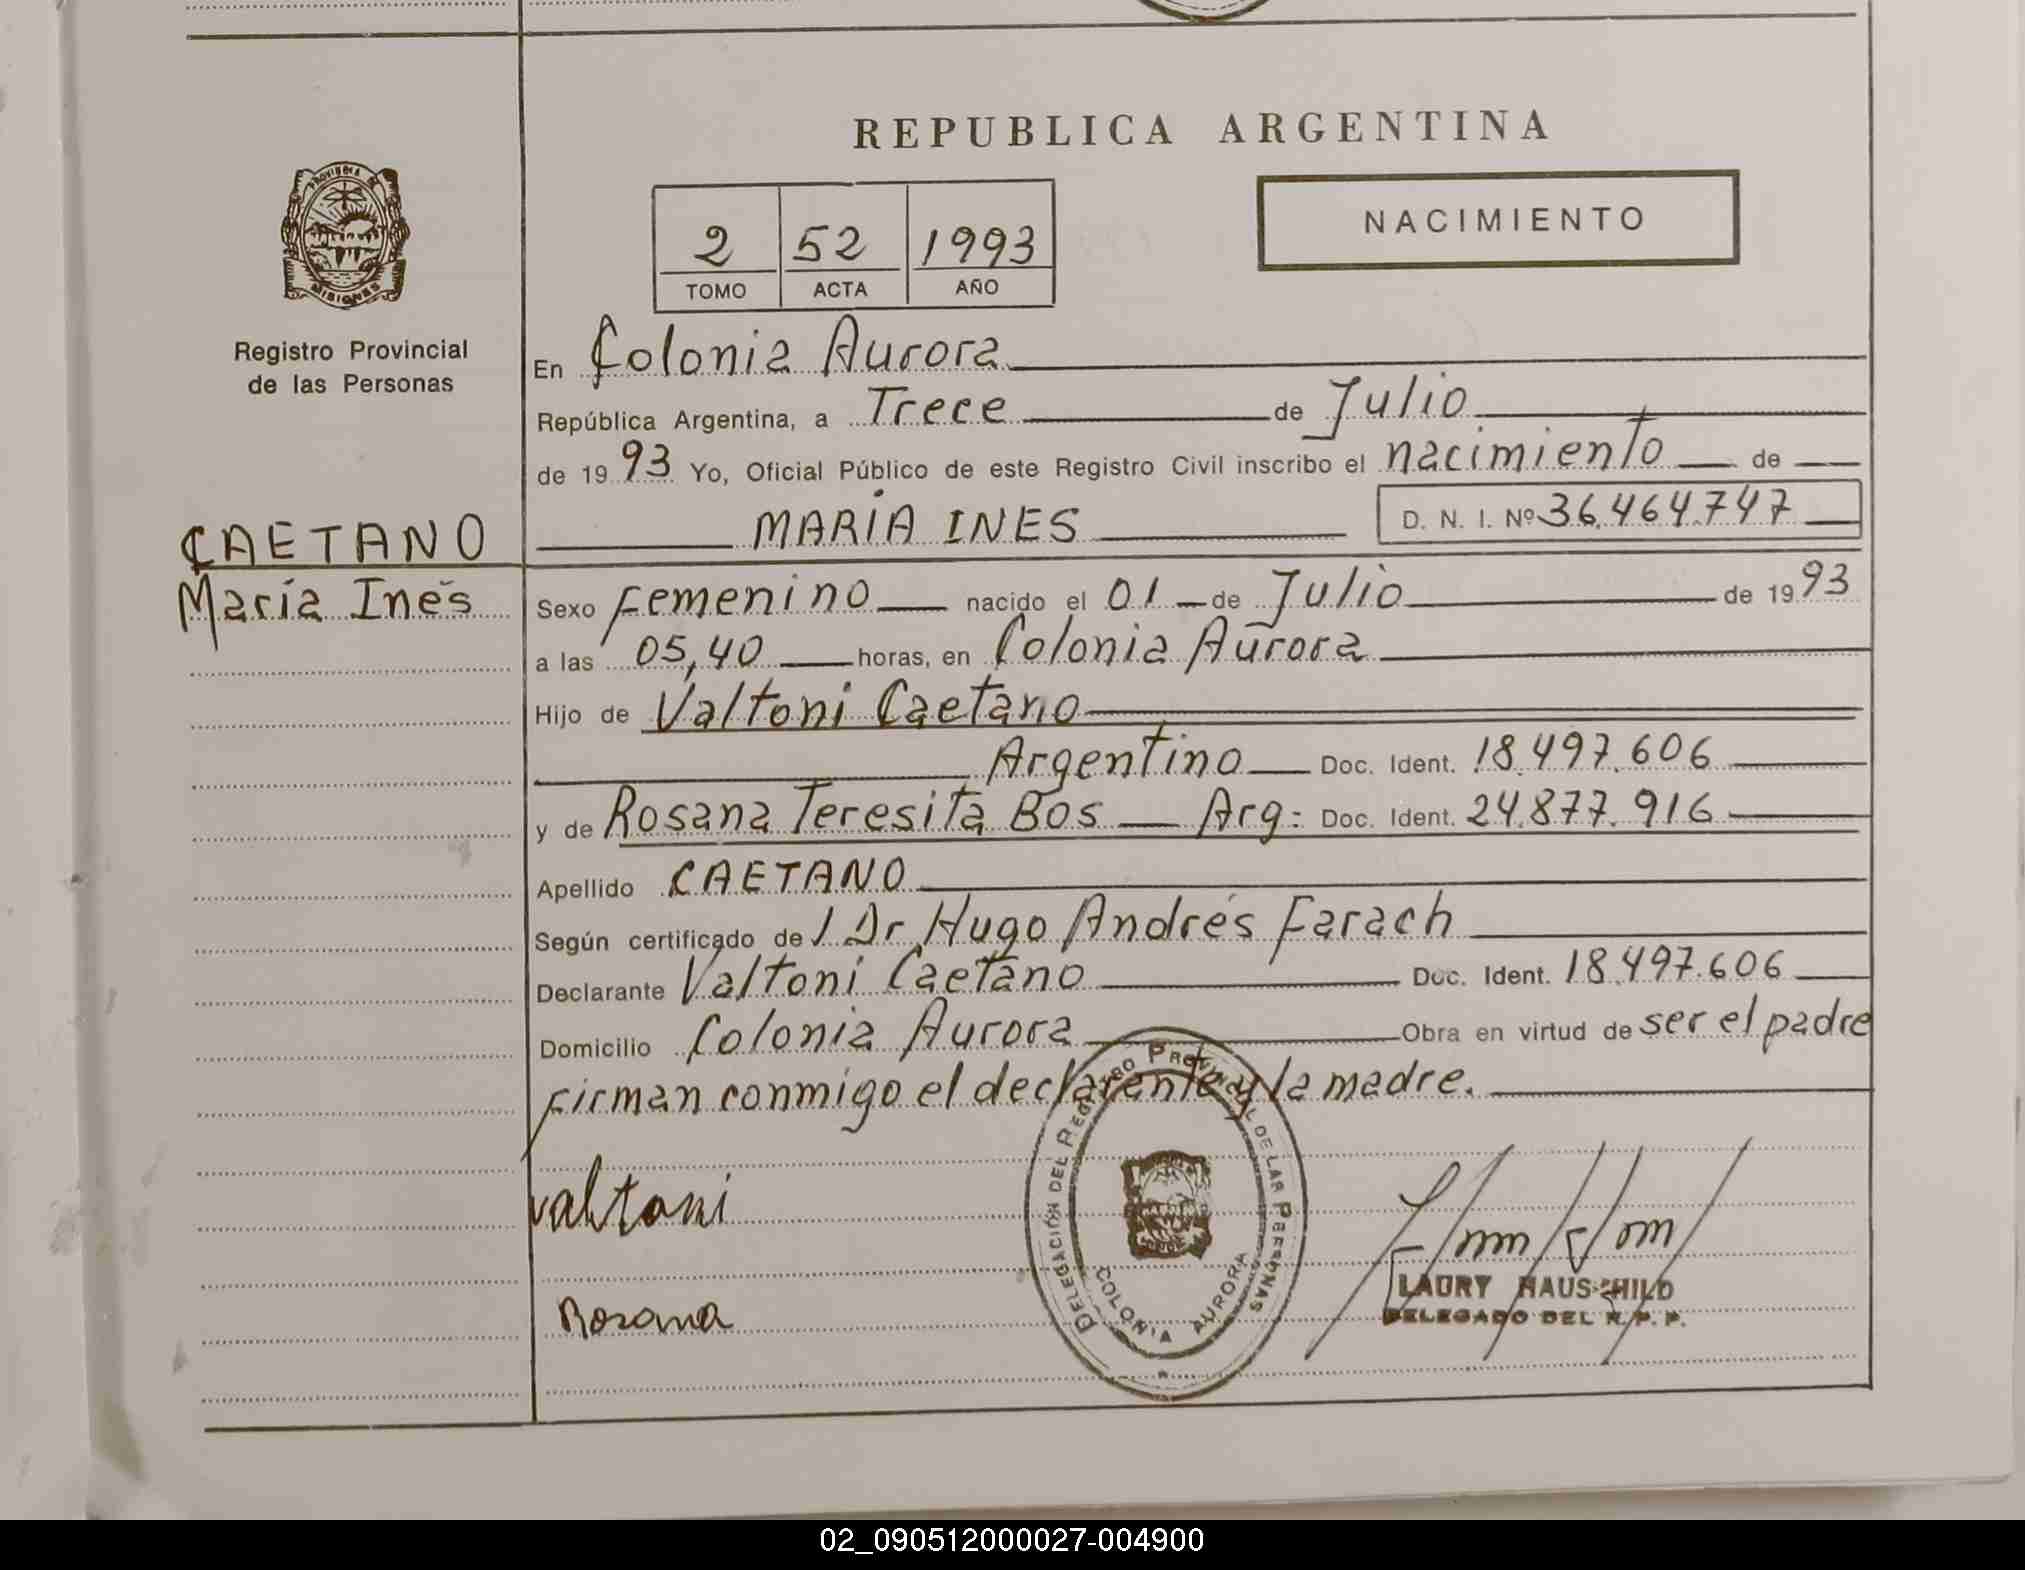 REPUBLICA ARGENTINA
PROVINCIA DE
MISIONES
Registro Provincial
de las Personas
2 52 1993
TOMO ACTA AÑO
NACIMIENTO
En Colonia Aurora
República Argentina, a Trece de Julio
de 1993 Yo, Oficial Público de este Registro Civil inscribo el nacimiento de
MARÍA INES D. N. I. Nº 36.464.747
CAETANO
María Inés
Sexo Femenino nacido el 01 de Julio de 1993
a las 05,40 horas, en Colonia Aurora
Hijo de Valtoni Caetano
Argentino Doc. Ident. 18.497.606
y de Rosana Teresita Bos Arg: Doc. Ident. 24.877.916
Apellido CAETANO
Según certificado de l Dr Hugo Andrés Farach
Declarante Valtoni Caetano Doc. Ident. 18.497.606
Domicilio Colonia Aurora Obra en virtud de ser el padre
Firman conmigo el declarente y la madre.
valtoni
Rosana
DELEGACIÓN DEL REGISTRO PROVINCIAL DE LAS PERSONAS
COLONIA AURORA
LAURY HAUSCHILD
DELEGADO DEL R.P.P.
02_090512000027-004900